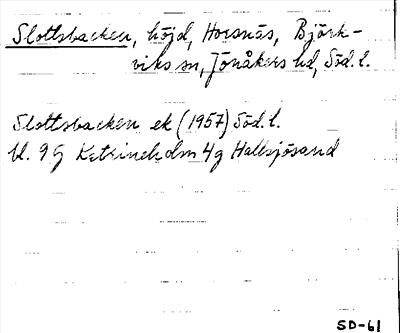 Slottsbacken, höjd, Horsnäs, Björk-
viks sn, Jönåkers hd, Söd. l.
Slottsbacken ek (1957) Söd. l.
bl. 9G Katrineholm 4g Hallsjösand
SD-61